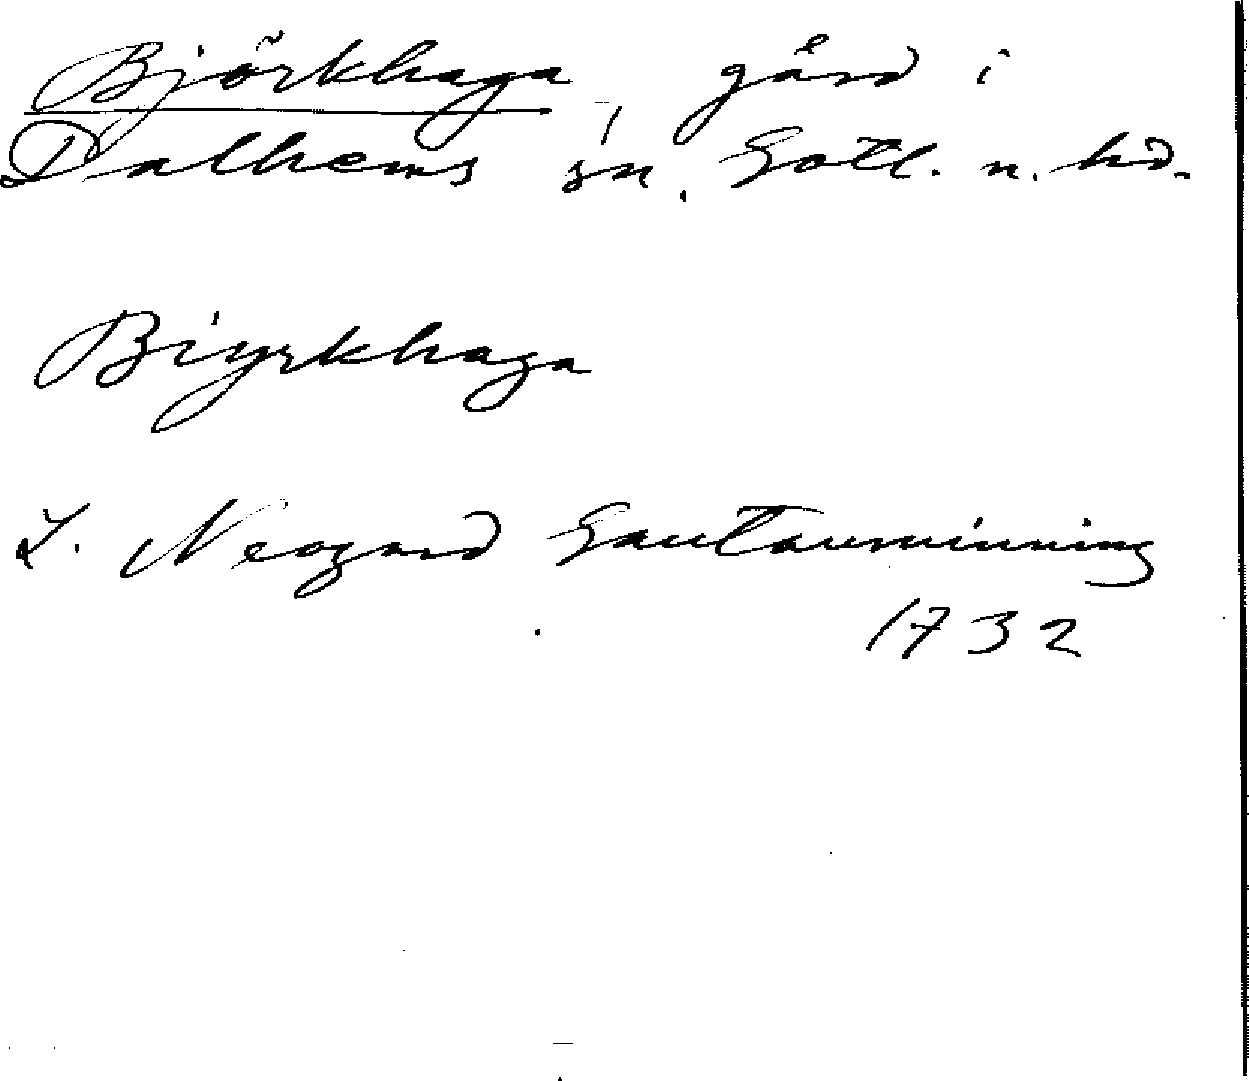 Björkhaga, gård i
Dalhems sn. Gotl. n. hd.
Biyrkhaga
L. Neogard Gautauminning
1732